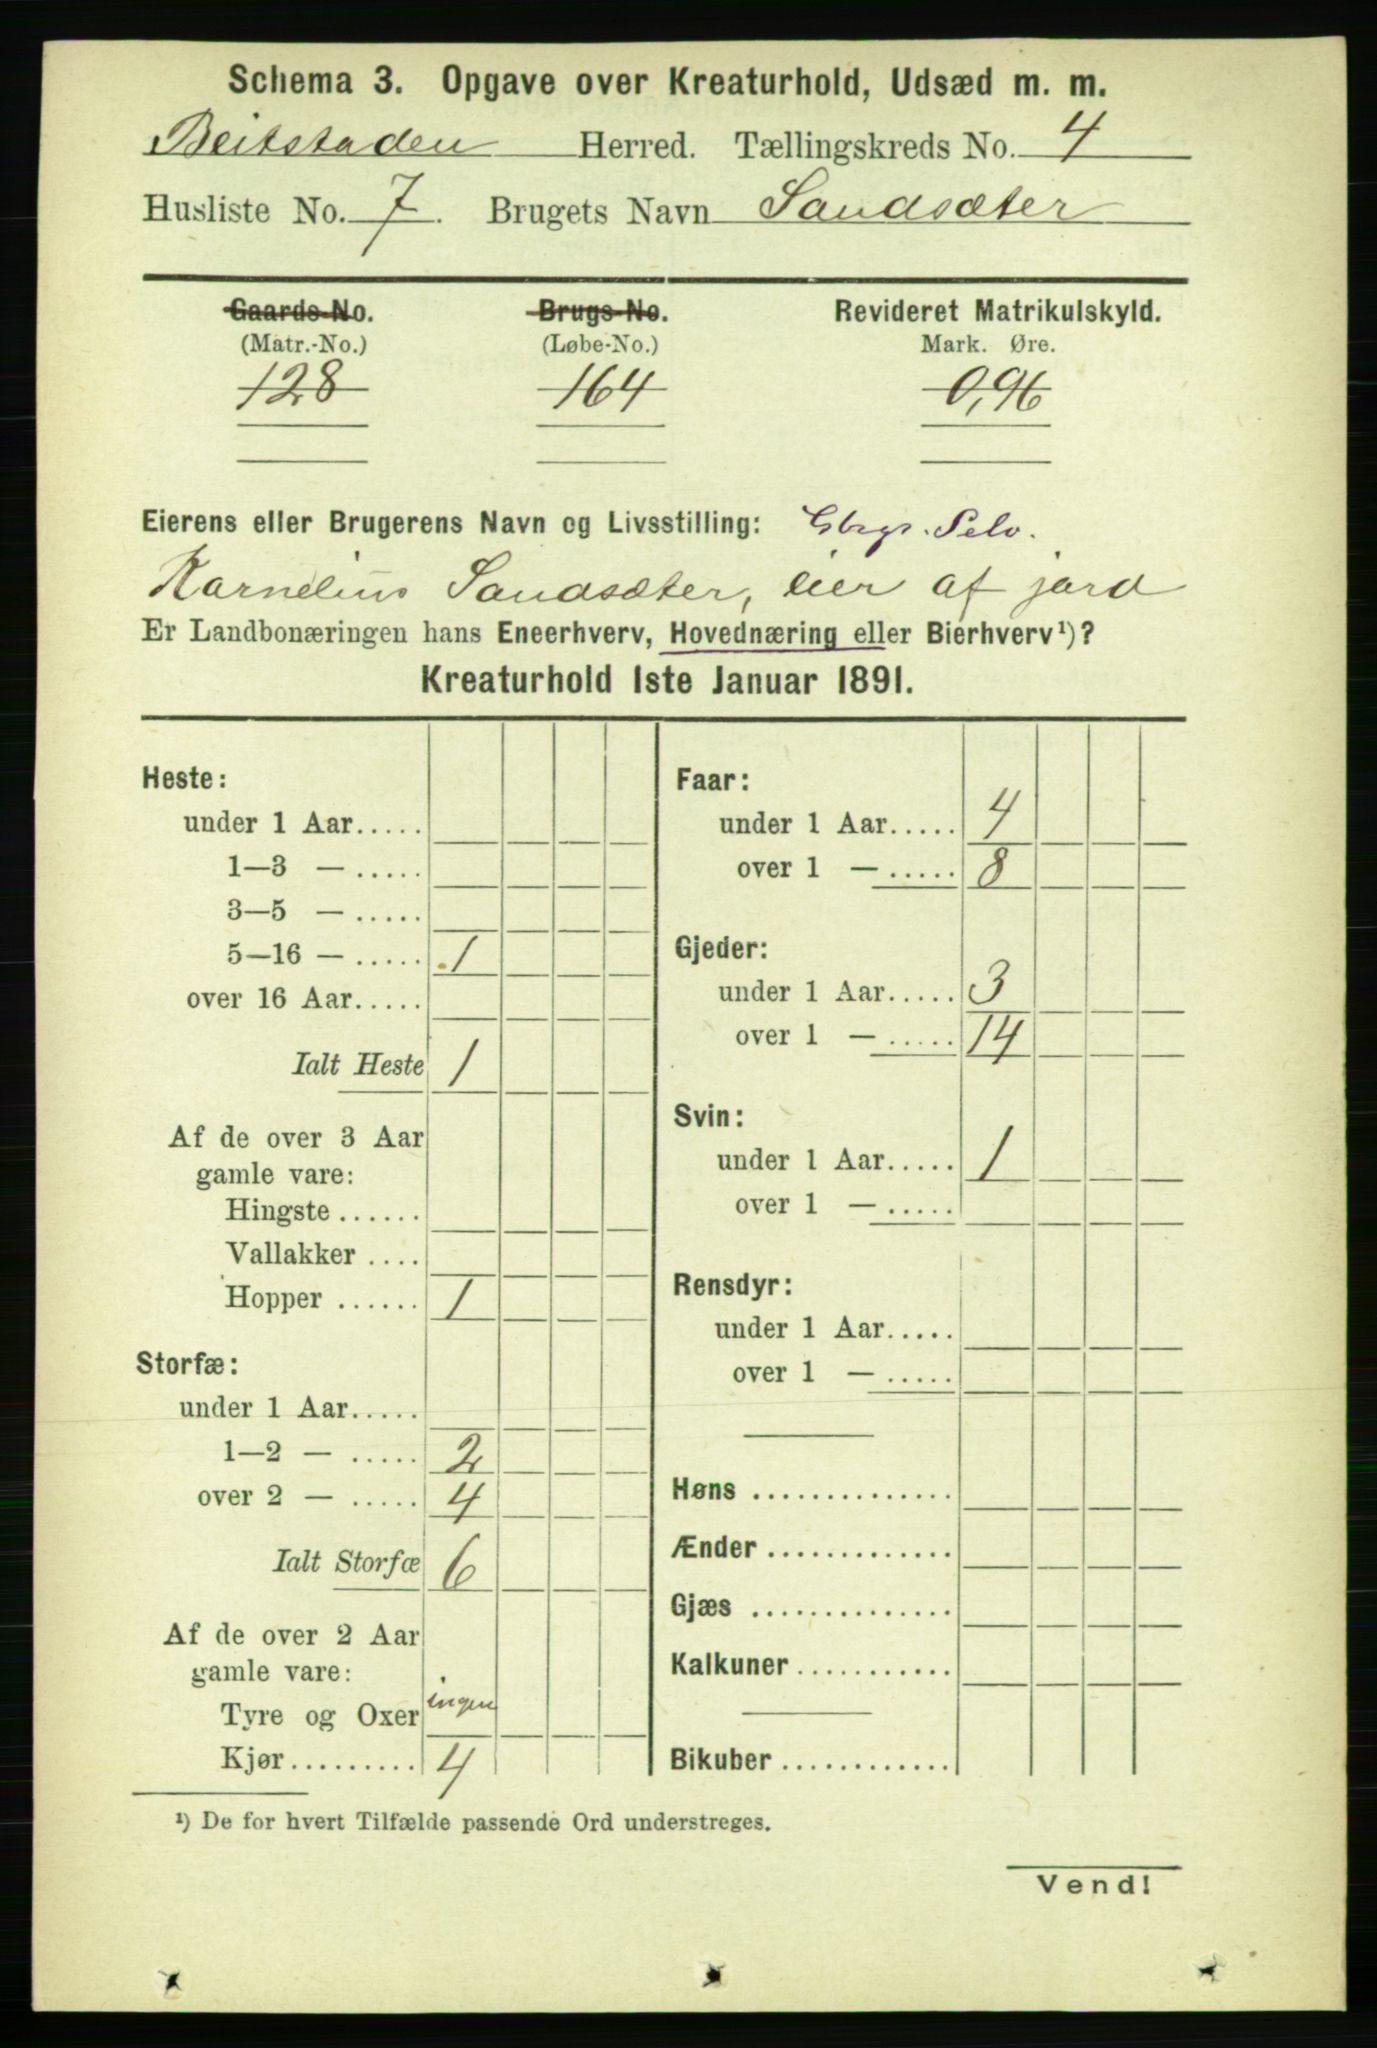 Schema 3. Opgave over Kreaturhold, Udsæd m. m.
Beitstaden Herred. Tællingskreds No. 4
Husliste No. 7. Brugets Navn Sandsæter
Gaards-No. Brugs-No. Revideret Matrikulskyld.
(Matr.-No.) (Løbe-No.) Mark. Øre.
128 164 0,96
Eierens eller Brugerens Navn og Livsstilling: Gbr. Selv.
Karnelius Sandsæter, eier af jord
Er Landbonæringen hans Eneerhverv, Hovednæring eller Bierhverv¹)?
Kreaturhold 1ste Januar 1891.
Heste:
under 1 Aar.....
1—3 — .....
3—5 — .....
5—16 — ..... 1
over 16 Aar.....
Ialt Heste 1
Af de over 3 Aar
gamle vare:
Hingste ......
Vallakker ....
Hopper ...... 1
Storfæ:
under 1 Aar.....
1—2 — ..... 2
over 2 — ..... 4
Ialt Storfæ 6
Af de over 2 Aar
gamle vare:
Tyre og Oxer ingen
Kjør......... 4
Faar:
under 1 Aar..... 4
over 1 — ..... 8
Gjeder:
under 1 Aar..... 3
over 1 — ..... 14
Svin:
under 1 Aar..... 1
over 1 — .....
Rensdyr:
under 1 Aar.....
over 1 — .....
Høns ..............
Ænder .............
Gjæs ..............
Kalkuner...........
Bikuber ............
¹) De for hvert Tilfælde passende Ord understreges.
Vend!